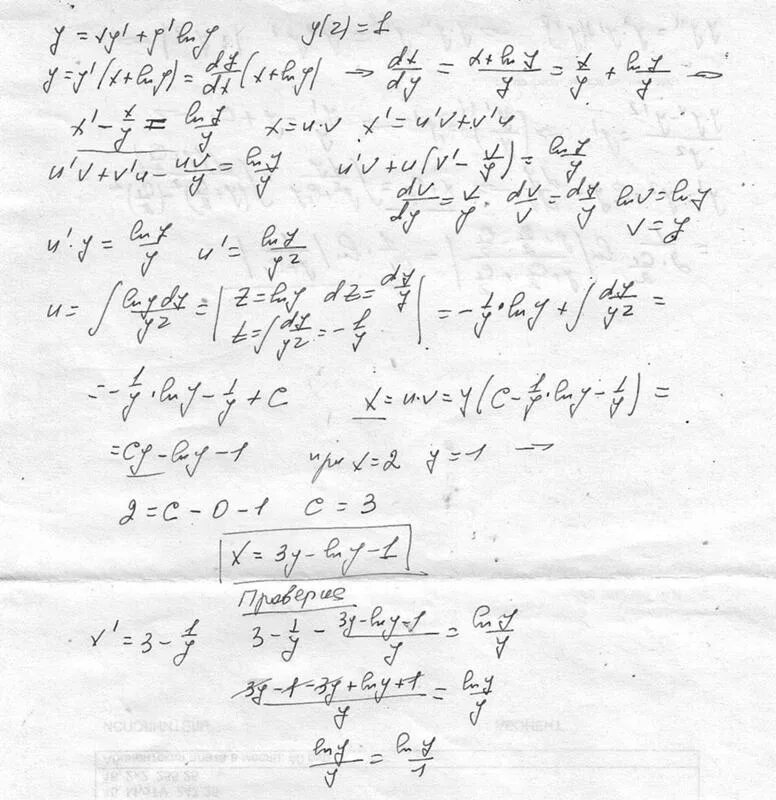 y = xy' + y' ln y y(2) = 1
y = y'(x + ln y) = dy/dx (x + ln y) → dx/dy = (x + ln y)/y = x/y + ln y/y →
x' - x/y = ln y/y x = u·v x' = u'v + v'u
u'v + v'u - uv/y = ln y/y u'v + u(v' - v/y) = ln y/y
dv/dy = v/y dv/v = dy/y ln v = ln y
v = y
u'·y = ln y/y u' = ln y/y²
u = ∫ ln y dy/y² = | z = ln y dz = dy/y
t = ∫ dy/y² = -1/y | = -1/y · ln y + ∫ dy/y² =
= -1/y · ln y - 1/y + C x = u·v = y(C - 1/y · ln y - 1/y) =
= Cy - ln y - 1 при x = 2 y = 1 →
2 = C - 0 - 1 C = 3
x = 3y - ln y - 1
Проверка
x' = 3 - 1/y 3 - 1/y - (3y - ln y - 1)/y = ln y/y
(3y - 1 - 3y + ln y + 1)/y = ln y/y
ln y/y = ln y/1